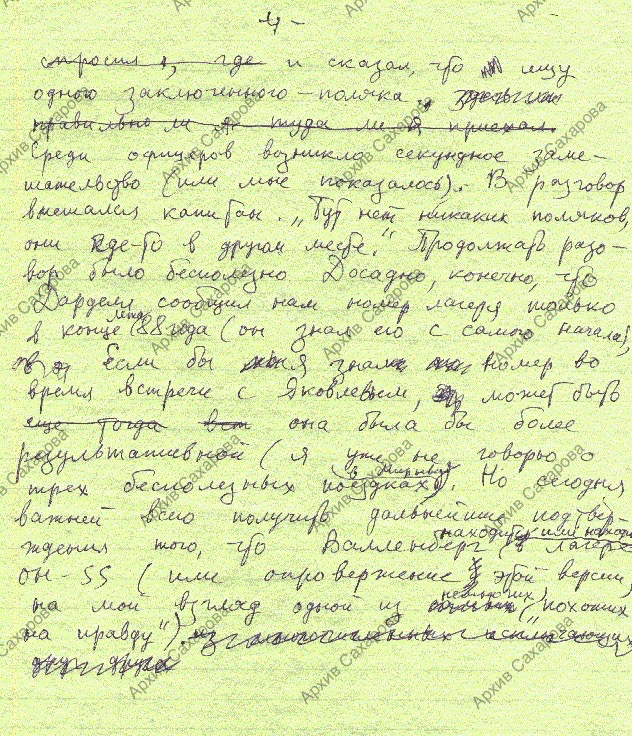 - 4 -
спросил я, где и сказал, что ищу
одного заключенного - поляка.
правильно ли я туда ли я приехал.
Среди офицеров возникло секундное заме-
шательство (или мне показалось). В разговор
вмешался капитан. "Тут нет никаких поляков,
они где-то в другом месте." Продолжать разго-
вор было бесполезно Досадно, конечно, что
Дардель сообщил нам номер лагеря только
в конце лета 88 года (он знал его с самого начала),
Если бы я знал номер во
время встречи с Яковлевым, может быть
еще тогда она была бы более
результативной (я уже не говорю о
трех бесполезных поездках в Мирный). Но сегодня
важней всего получить дальнейшие подтвер-
ждения того, что Валленберг находится или находился в лагере
ОН-55 (или опровержение этой версии,
на мой взгляд одной из немногих, "похожих
на правду")
Архив Сахарова